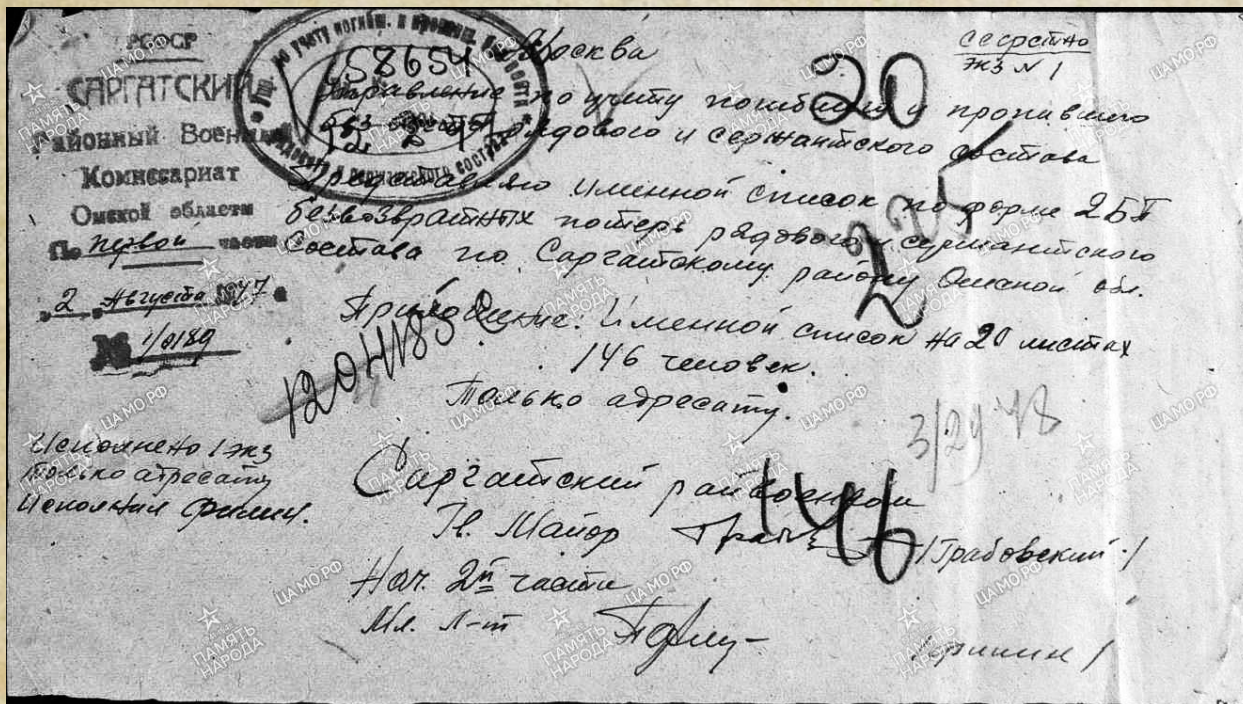 РСФСР
САРГАТСКИЙ
Районный Военный
Комиссариат
Омской области
По первой части
"2" Августа 1947 г
№ 1/0189
Упр. по учету погибш. и пропавш. без вести
рядового и сержантского состава
58654
Секретно
экз N 1
Москва
20
Управление по учету погибшего и пропавшего
без вести рядового и сержантского состава
Представляю именной список по форме 2БП
безвозвратных потерь рядового и сержантского
состава по Саргатскому району Омской обл.
225
Приложение: Именной список на 20 листах
146 человек.
Только адресату.
3/29 48
Исполнено 1 экз
только адресату
Исполнил
Саргатский райвоенком
Гв. Майор /Грабовский/
146
Нач. 2й части
Мл. Л-т
ПАМЯТЬ НАРОДА
ЦАМО.РФ